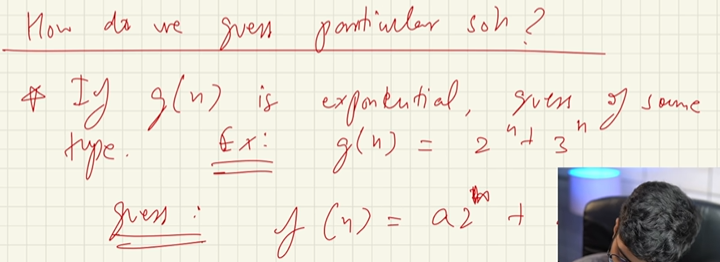 How do we guess particular soln?
* If g(n) is exponential, guess of same
type. Ex: g(n) = 2^n + 3^n
guess: f(n) = a2^n +